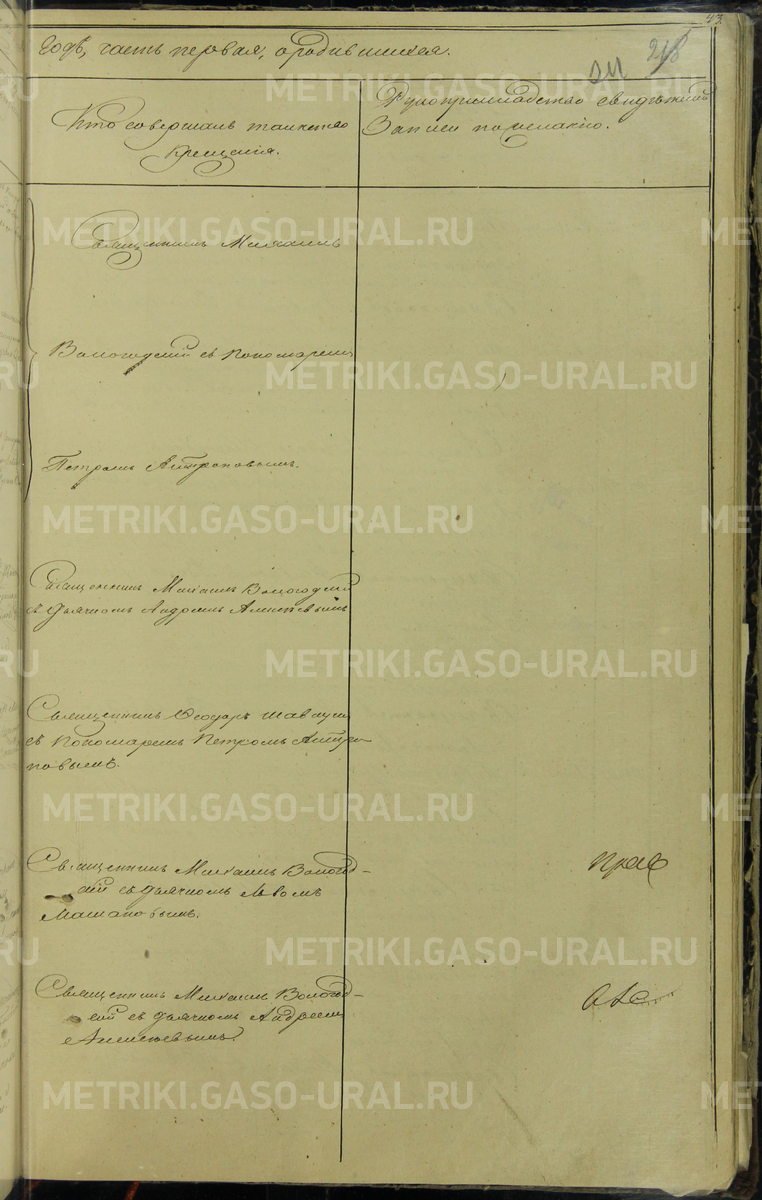 43.
Годѣ, часть первая, о родившихся.
218
211
Кто совершалъ таинство
крещенія.
Рукоприкладство свидѣтелей
записи по желанію.
Священникъ Михаилъ
Вологодскій съ пономаремъ
Петромъ Антроповымъ.
Священникъ Михаилъ Вологодскій
съ дьячкомъ Андреемъ Алексѣевымъ
Священникъ Ѳеодоръ
съ пономаремъ Петромъ Антро
повымъ.
Священникъ Михаилъ Вологод-
скій съ дьячкомъ Львомъ
Священникъ Михаилъ Вологод-
скій съ дьячкомъ Андреемъ
Алексѣевымъ.
METRIKI.GASO-URAL.RU